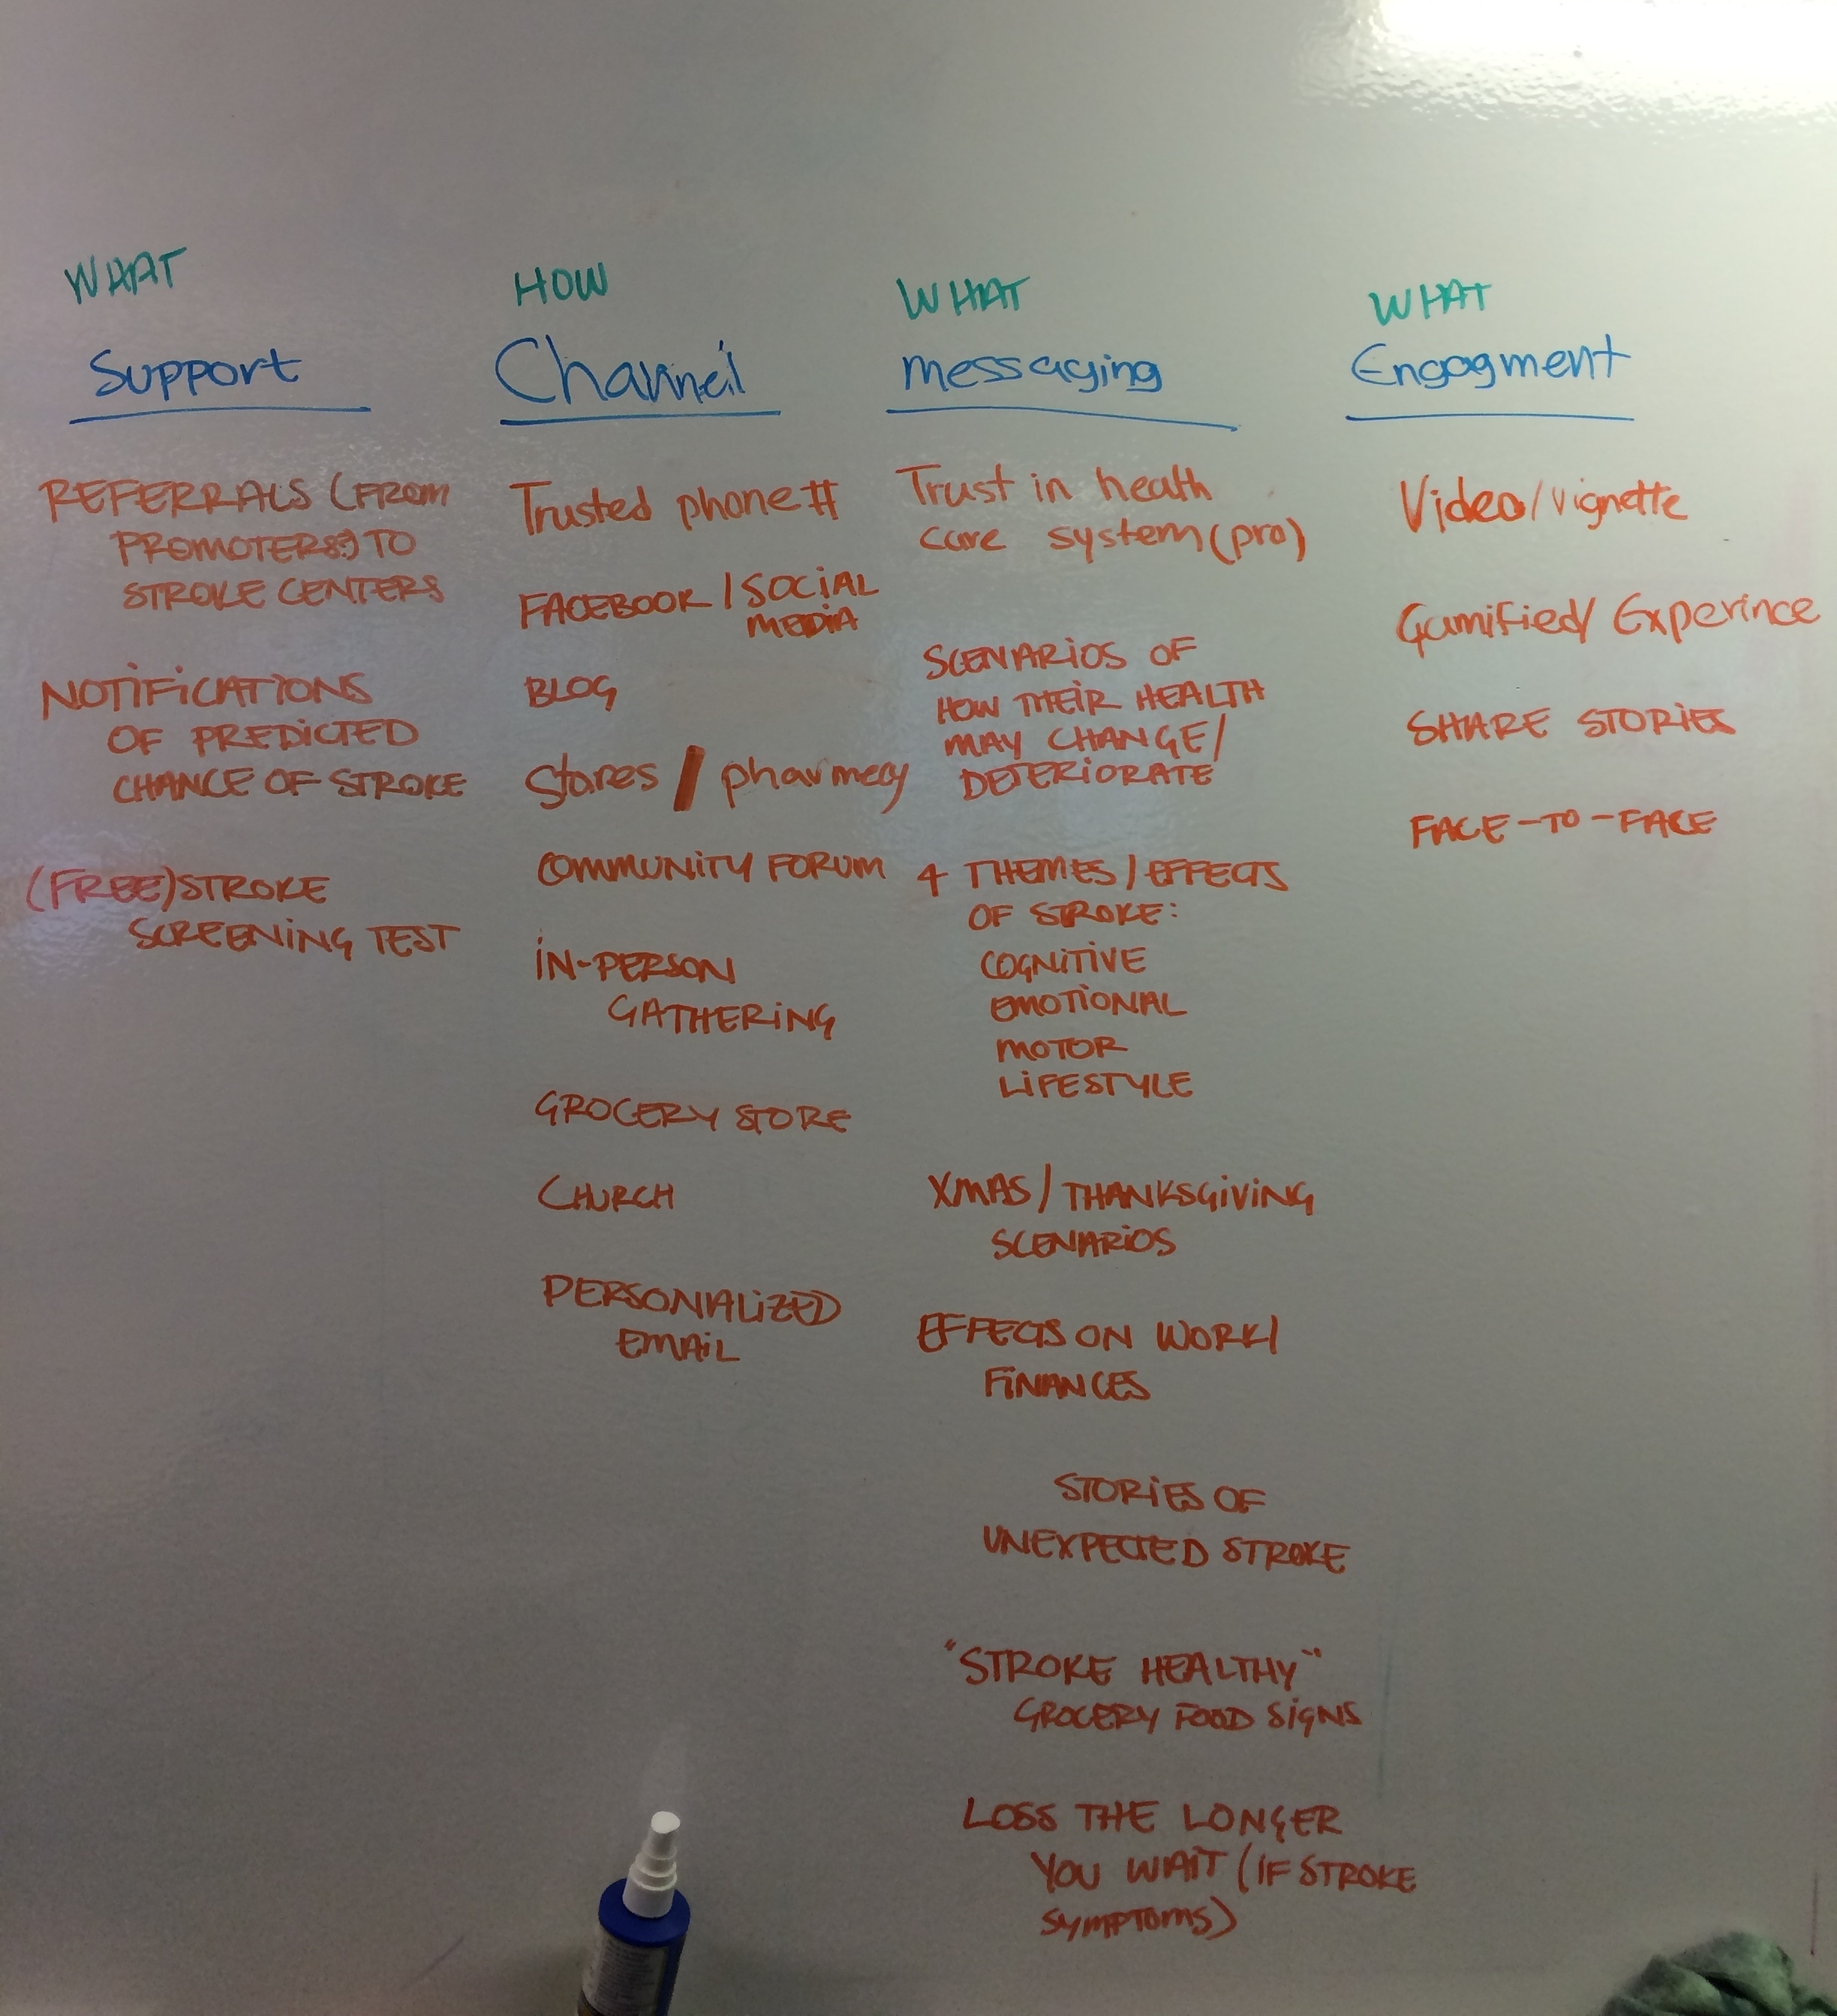 WHAT
Support
REFERRALS (FROM
PROMOTERS?) TO
STROKE CENTERS
NOTIFICATIONS
OF PREDICTED
CHANCE OF STROKE
(FREE) STROKE
SCREENING TEST
HOW
Channel
Trusted phone #
FACEBOOK / SOCIAL
MEDIA
BLOG
Stores / pharmacy
COMMUNITY FORUM
IN-PERSON
GATHERING
GROCERY STORE
CHURCH
PERSONALIZED
EMAIL
WHAT
messaging
Trust in health
care system (pro)
SCENARIOS OF
HOW THEIR HEALTH
MAY CHANGE/
DETERIORATE
4 THEMES / EFFECTS
OF STROKE:
COGNITIVE
EMOTIONAL
MOTOR
LIFESTYLE
XMAS / THANKSGIVING
SCENARIOS
EFFECTS ON WORK/
FINANCES
STORIES OF
UNEXPECTED STROKE
"STROKE HEALTHY"
GROCERY FOOD SIGNS
LOSS THE LONGER
YOU WAIT (IF STROKE
SYMPTOMS)
WHAT
Engagment
Video/vignette
Gamified/ Experince
SHARE STORIES
FACE-TO-FACE